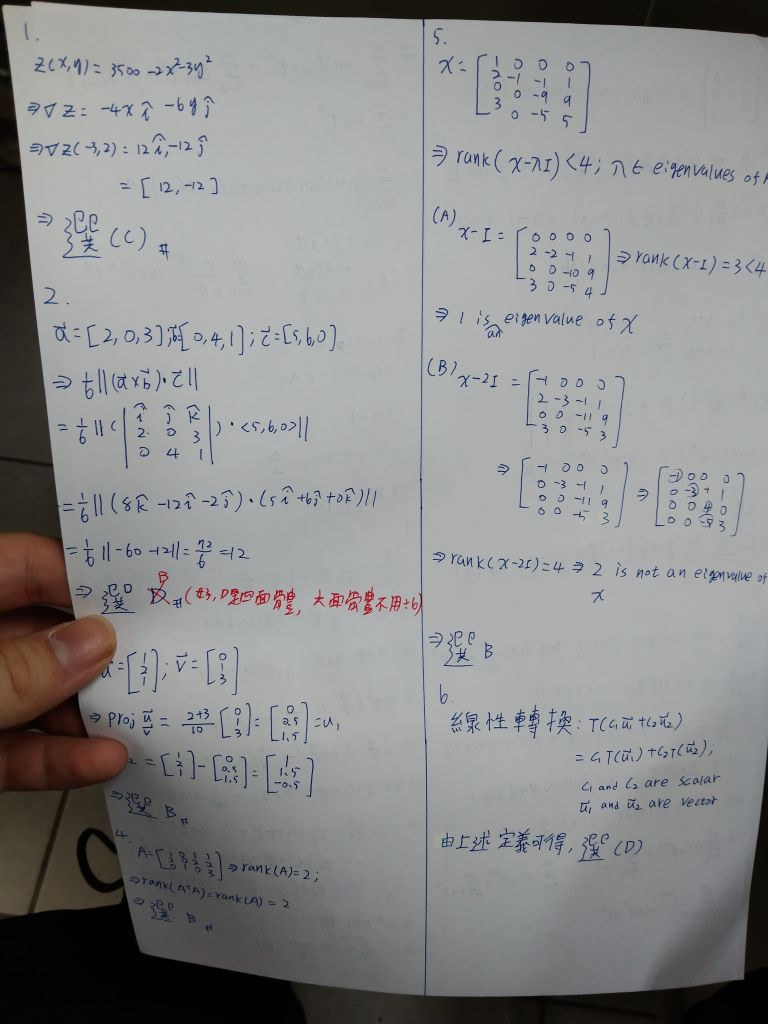 1.
z(x,y) = 3500 -2x²-3y²
⇒∇z = -4x î -6y ĵ
⇒∇z(-3,2) = 12 î, -12 ĵ
= [12, -12]
⇒ 選 (C) #
2.
a⃗ = [2,0,3]; b⃗[0,4,1]; c⃗=[5,6,0]
⇒ 1/6 ||(a⃗×b⃗)·c⃗||
= 1/6 ||( | î ĵ k̂
2 0 3
0 4 1 | ) · <5,6,0>||
= 1/6 ||(8k̂ -12î -2ĵ)·(5î+6ĵ+0k̂)||
= 1/6 ||-60 -12|| = 72/6 = 12
B
⇒ 選 D # (才是四面骨豊, 六面骨豊不用÷6)
u⃗ = [1 2 1]; v⃗ = [0 1 3]
⇒ proj u⃗ v⃗ = 2+3/10 [0 1 3] = [0 0.5 1.5] = u₁
2 = [1 2 1] - [0 0.5 1.5] = [1 1.5 -0.5]
⇒ 選 B #
4.
⇒ rank(A)=2;
⇒ rank(AᵀA) = rank(A) = 2
⇒ 選 B #
5.
x = [ 1 0 0 0
2 -1 -1 1
0 0 -9 9
3 0 -5 5 ]
⇒ rank(x-λI)<4; λ ∈ eigenvalues of
(A)
x-I = [ 0 0 0 0
2 -2 -1 1
0 0 -10 9
3 0 -5 4 ] ⇒ rank(x-I) = 3<4
⇒ 1 is an eigenvalue of x
(B)
x-2I = [ -1 0 0 0
2 -3 -1 1
0 0 -11 9
3 0 -5 3 ]
⇒ [ -1 0 0 0
0 -3 -1 1
0 0 -11 9
0 0 -5 3 ] ⇒ [ -1 0 0 0
0 -3 -1 1
0 0 4 0
0 0 -5 3 ]
⇒ rank(x-2I)=4 ⇒ 2 is not an eigenvalue of
x
⇒ 選 B
6.
線性轉換: T(c₁u⃗₁+c₂u⃗₂)
= c₁T(u⃗₁)+c₂T(u⃗₂);
c₁ and c₂ are scalar
u⃗₁ and u⃗₂ are vector
由上述定義可得, 選 (D)